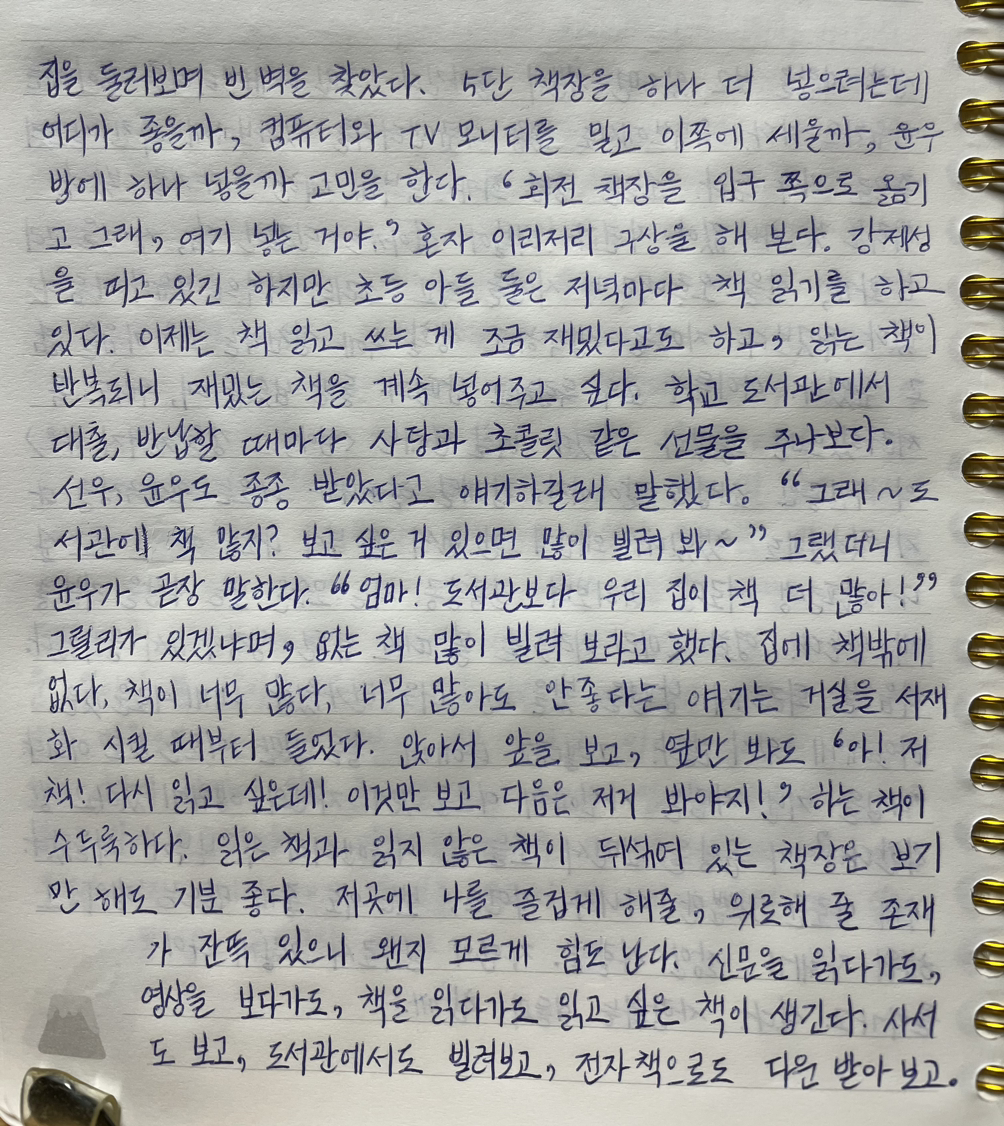 집을 둘러보며 빈 벽을 찾았다. 5단 책장을 하나 더 넣으려는데
어디가 좋을까, 컴퓨터와 TV 모니터를 밀고 이쪽에 세울까, 윤우
방에 하나 넣을까 고민을 한다. '회전 책장을 입구 쪽으로 옮기
고 그래, 여기 넣는 거야.' 혼자 이리저리 구상을 해 본다. 강제성
을 띠고 있긴 하지만 초등 아들 둘은 저녁마다 책 읽기를 하고
있다. 이제는 책 읽고 쓰는 게 조금 재밌다고도 하고, 읽는 책이
반복되니 재밌는 책을 계속 넣어주고 싶다. 학교 도서관에서
대출, 반납할 때마다 사탕과 초콜릿 같은 선물을 주나보다.
선우, 윤우도 종종 받았다고 얘기하길래 말했다. "그래~ 도
서관에 책 많지? 보고 싶은 거 있으면 많이 빌려 봐~" 그랬더니
윤우가 곧장 말한다. "엄마! 도서관보다 우리 집이 책 더 많아!"
그럴리가 있겠냐며, 없는 책 많이 빌려 보라고 했다. 집에 책밖에
없다, 책이 너무 많다, 너무 많아도 안좋다는 얘기는 거실을 서재
화 시킬 때부터 들었다. 앉아서 앞을 보고, 옆만 봐도 '아! 저
책! 다시 읽고 싶은데! 이것만 보고 다음은 저거 봐야지!' 하는 책이
수두룩하다. 읽은 책과 읽지 않은 책이 뒤섞여 있는 책장은 보기
만 해도 기분 좋다. 저곳에 나를 즐겁게 해줄, 위로해 줄 존재
가 잔뜩 있으니 왠지 모르게 힘도 난다. 신문을 읽다가도,
영상을 보다가도, 책을 읽다가도 읽고 싶은 책이 생긴다. 사서
도 보고, 도서관에서도 빌려보고, 전자책으로도 다운 받아 보고.